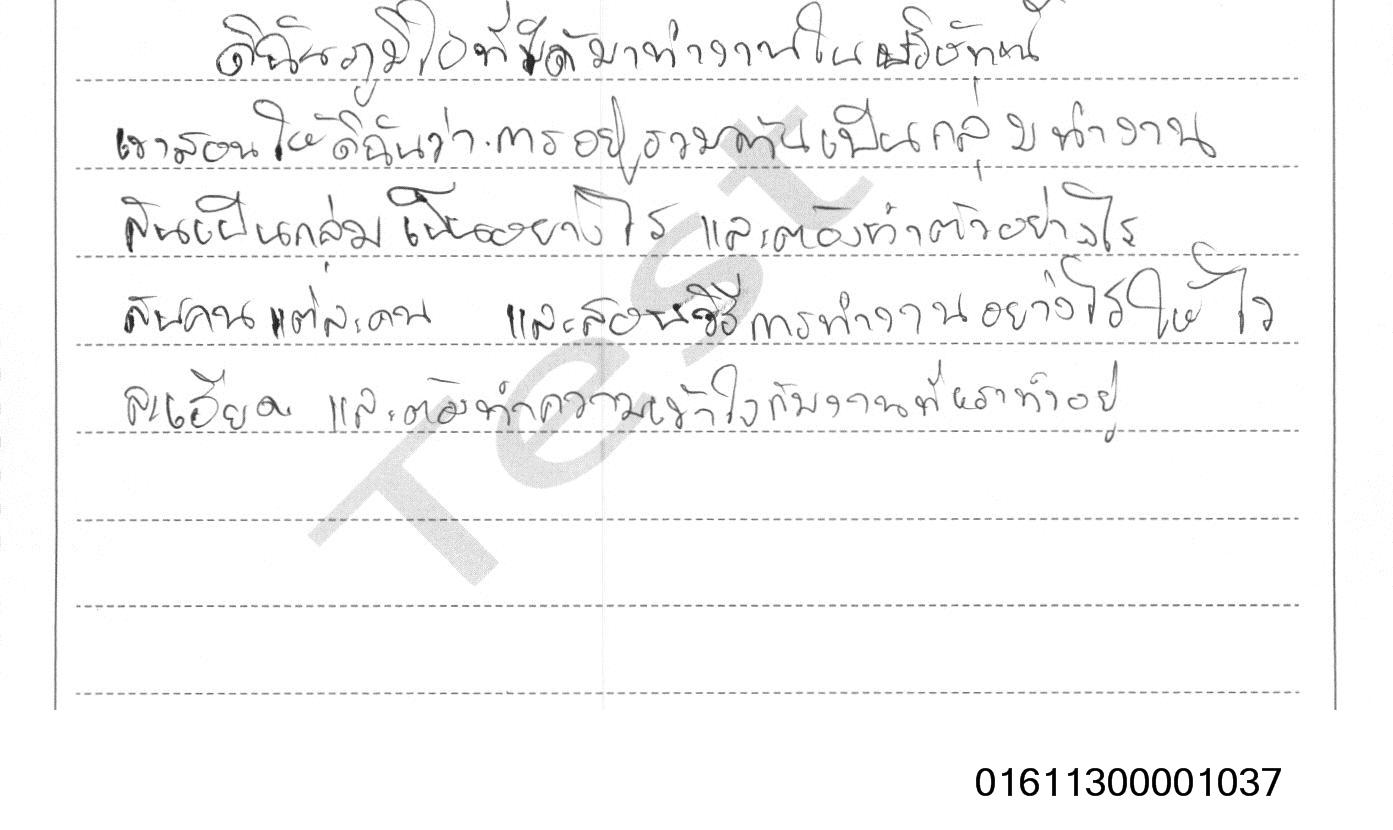 ดิฉันภูมิใจที่ได้มาทำงานในบริษัทนี้
เขาสอนให้ดิฉันว่าการอยู่รวมกันเป็นกลุ่มทำงาน
กันเป็นกลุ่มเป็นอย่างไร และต้องทำตัวอย่างไร
กับคนแต่ละคน และสอนวิธีการทำงานอย่างไรให้ไว
ละเอียด และต้องทำความเข้าใจกับงานที่เราทำอยู่
Test
01611300001037